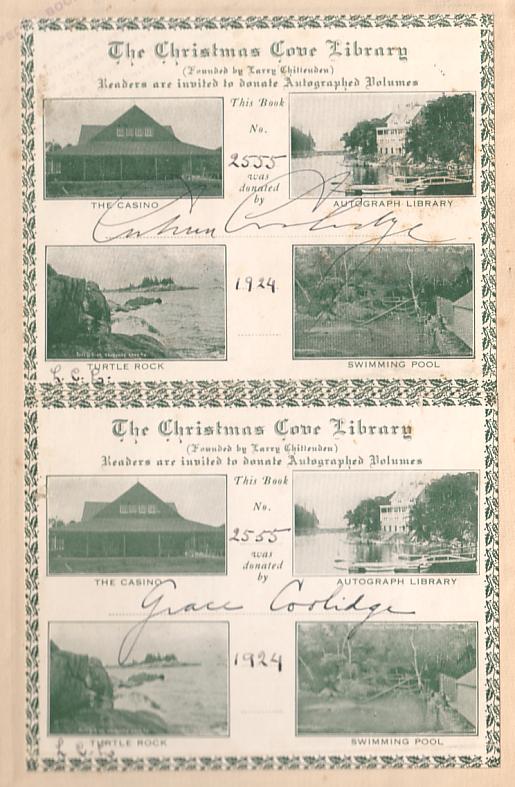 The Christmas Cove Library
(Founded by Larry Chittenden)
Readers are invited to donate Autographed Volumes
This Book
No.
2555
was
donated
by
THE CASINO
AUTOGRAPH LIBRARY
Calvin Coolidge
1924
TURTLE ROCK
SWIMMING POOL
L. C. L.
The Christmas Cove Library
(Founded by Larry Chittenden)
Readers are invited to donate Autographed Volumes
This Book
No.
2555
was
donated
by
THE CASINO
AUTOGRAPH LIBRARY
Grace Coolidge
1924
TURTLE ROCK
SWIMMING POOL